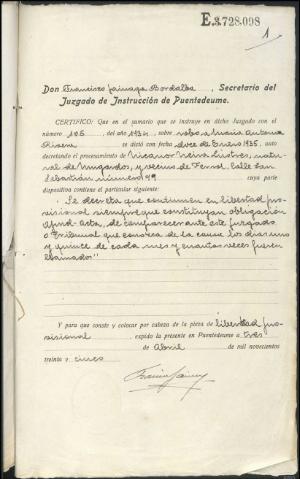 E.3.728.098
1
Don Francisco Jainaga Bordalba, Secretario del
Juzgado de Instrucción de Puentedeume.
CERTIFICO: Que en el sumario que se instruye en dicho Juzgado con el
número 106 del año 1934, sobre robo a María Antonia
se dictó con fecha doce de Enero 1935, auto
decretando el procesamiento de Nicanor Neira Lustres, natu-
ral de Mugardos, y vecino de Ferrol, Calle San
Sebastián número 49 cuya parte
dispositiva contiene el particular siguiente:
"Se decreta que continuen en libertad pro-
visional siempre que constituyan obligación
apud-acta, de comparecer ante este juzgado
o Tribunal que conozca de la causa los días uno
y quince de cada mes y cuantas veces fueren
llamados"
Y para que conste y colocar por cabeza de la pieza de libertad pro-
visional, expido la presente en Puentedeume a tres
de Abril de mil novecientos
treinta y cinco